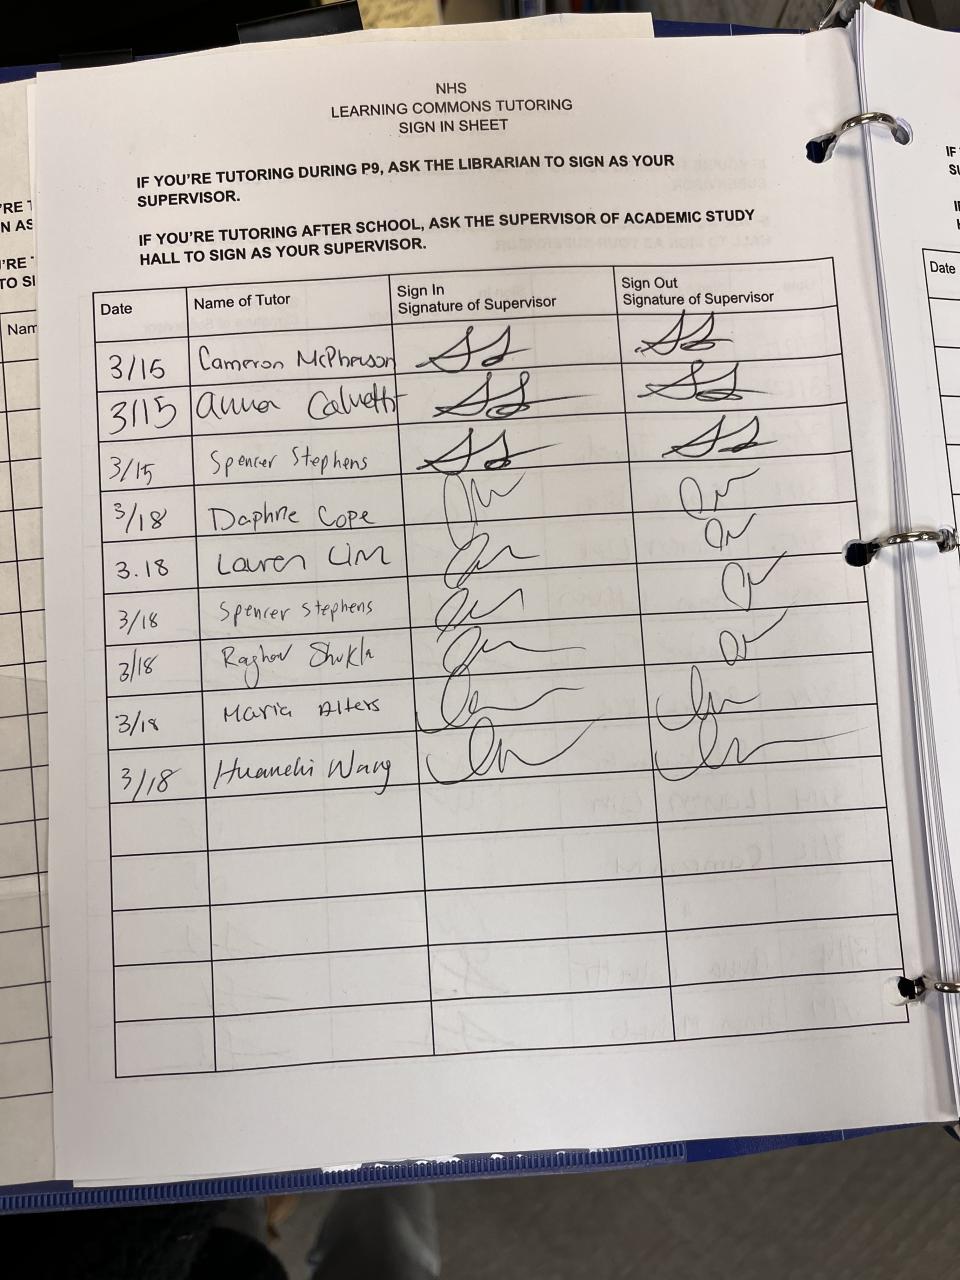 NHS
LEARNING COMMONS TUTORING
SIGN IN SHEET
IF YOU'RE TUTORING DURING P9, ASK THE LIBRARIAN TO SIGN AS YOUR
SUPERVISOR.
IF YOU'RE TUTORING AFTER SCHOOL, ASK THE SUPERVISOR OF ACADEMIC STUDY
HALL TO SIGN AS YOUR SUPERVISOR.
Date Name of Tutor Sign In Signature of Supervisor Sign Out Signature of Supervisor
3/15 Cameron McPherson
3/15 anna Calvetti
3/15 Spencer Stephens
3/18 Daphne Cope
3.18 Lauren Lim
3/18 Spencer Stephens
3/18 Raghav Shukla
3/18 Maria Alters
3/18 Huanchi Wang
Date